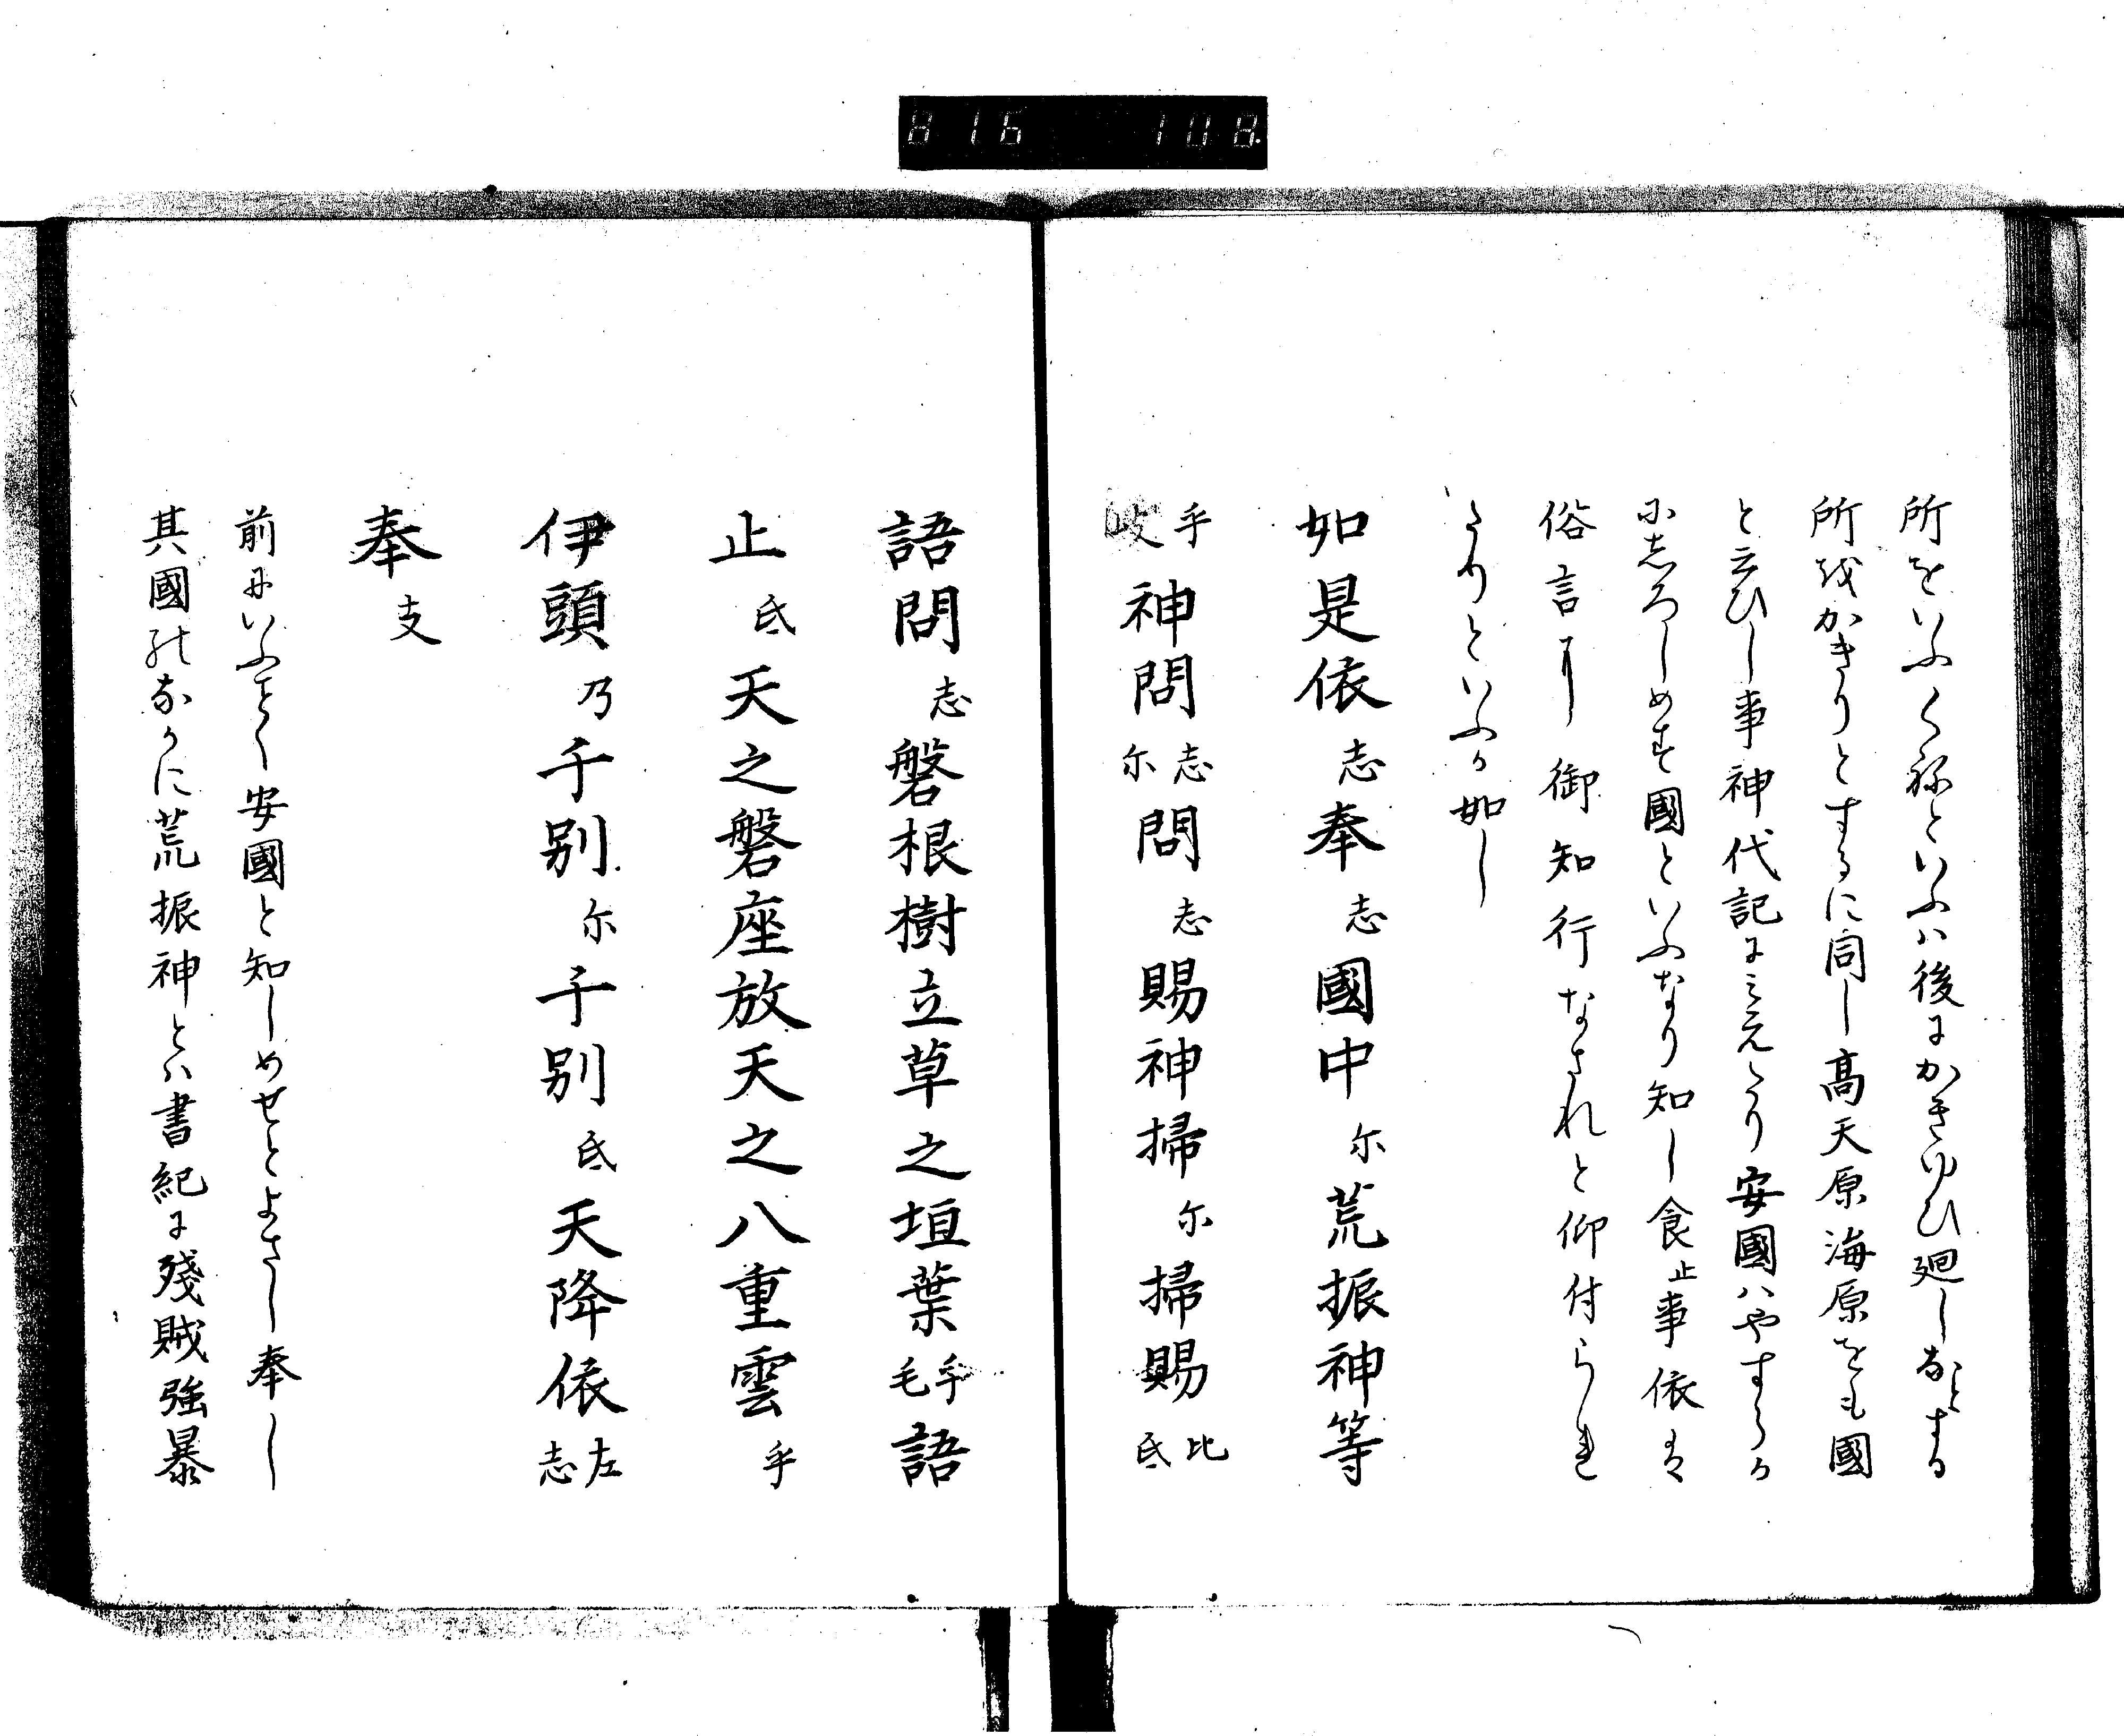 816 108
所をいふくねといふハ後にかきゆひ廻しなとする
所越かきりとするに同し高天原海原をも國
と云ひし事神代記にミえたり安國ハやすらか
にしろしめす國といふなり知し食止事依とは
俗言に御知行なされと仰付られ
たりといふか如し
如是依志奉志國中尓荒振神等
乎岐神問志尓問志賜神掃尓掃賜比氐
語問志磐根樹立草之垣葉乎毛語
止氐天之磐座放天之八重雲乎
伊頭乃千別尓千別氐天降依左志
奉支
前にいふことく安國と知しめせとよさし奉し
其國のなかに荒振神とハ書紀に殘賊強暴